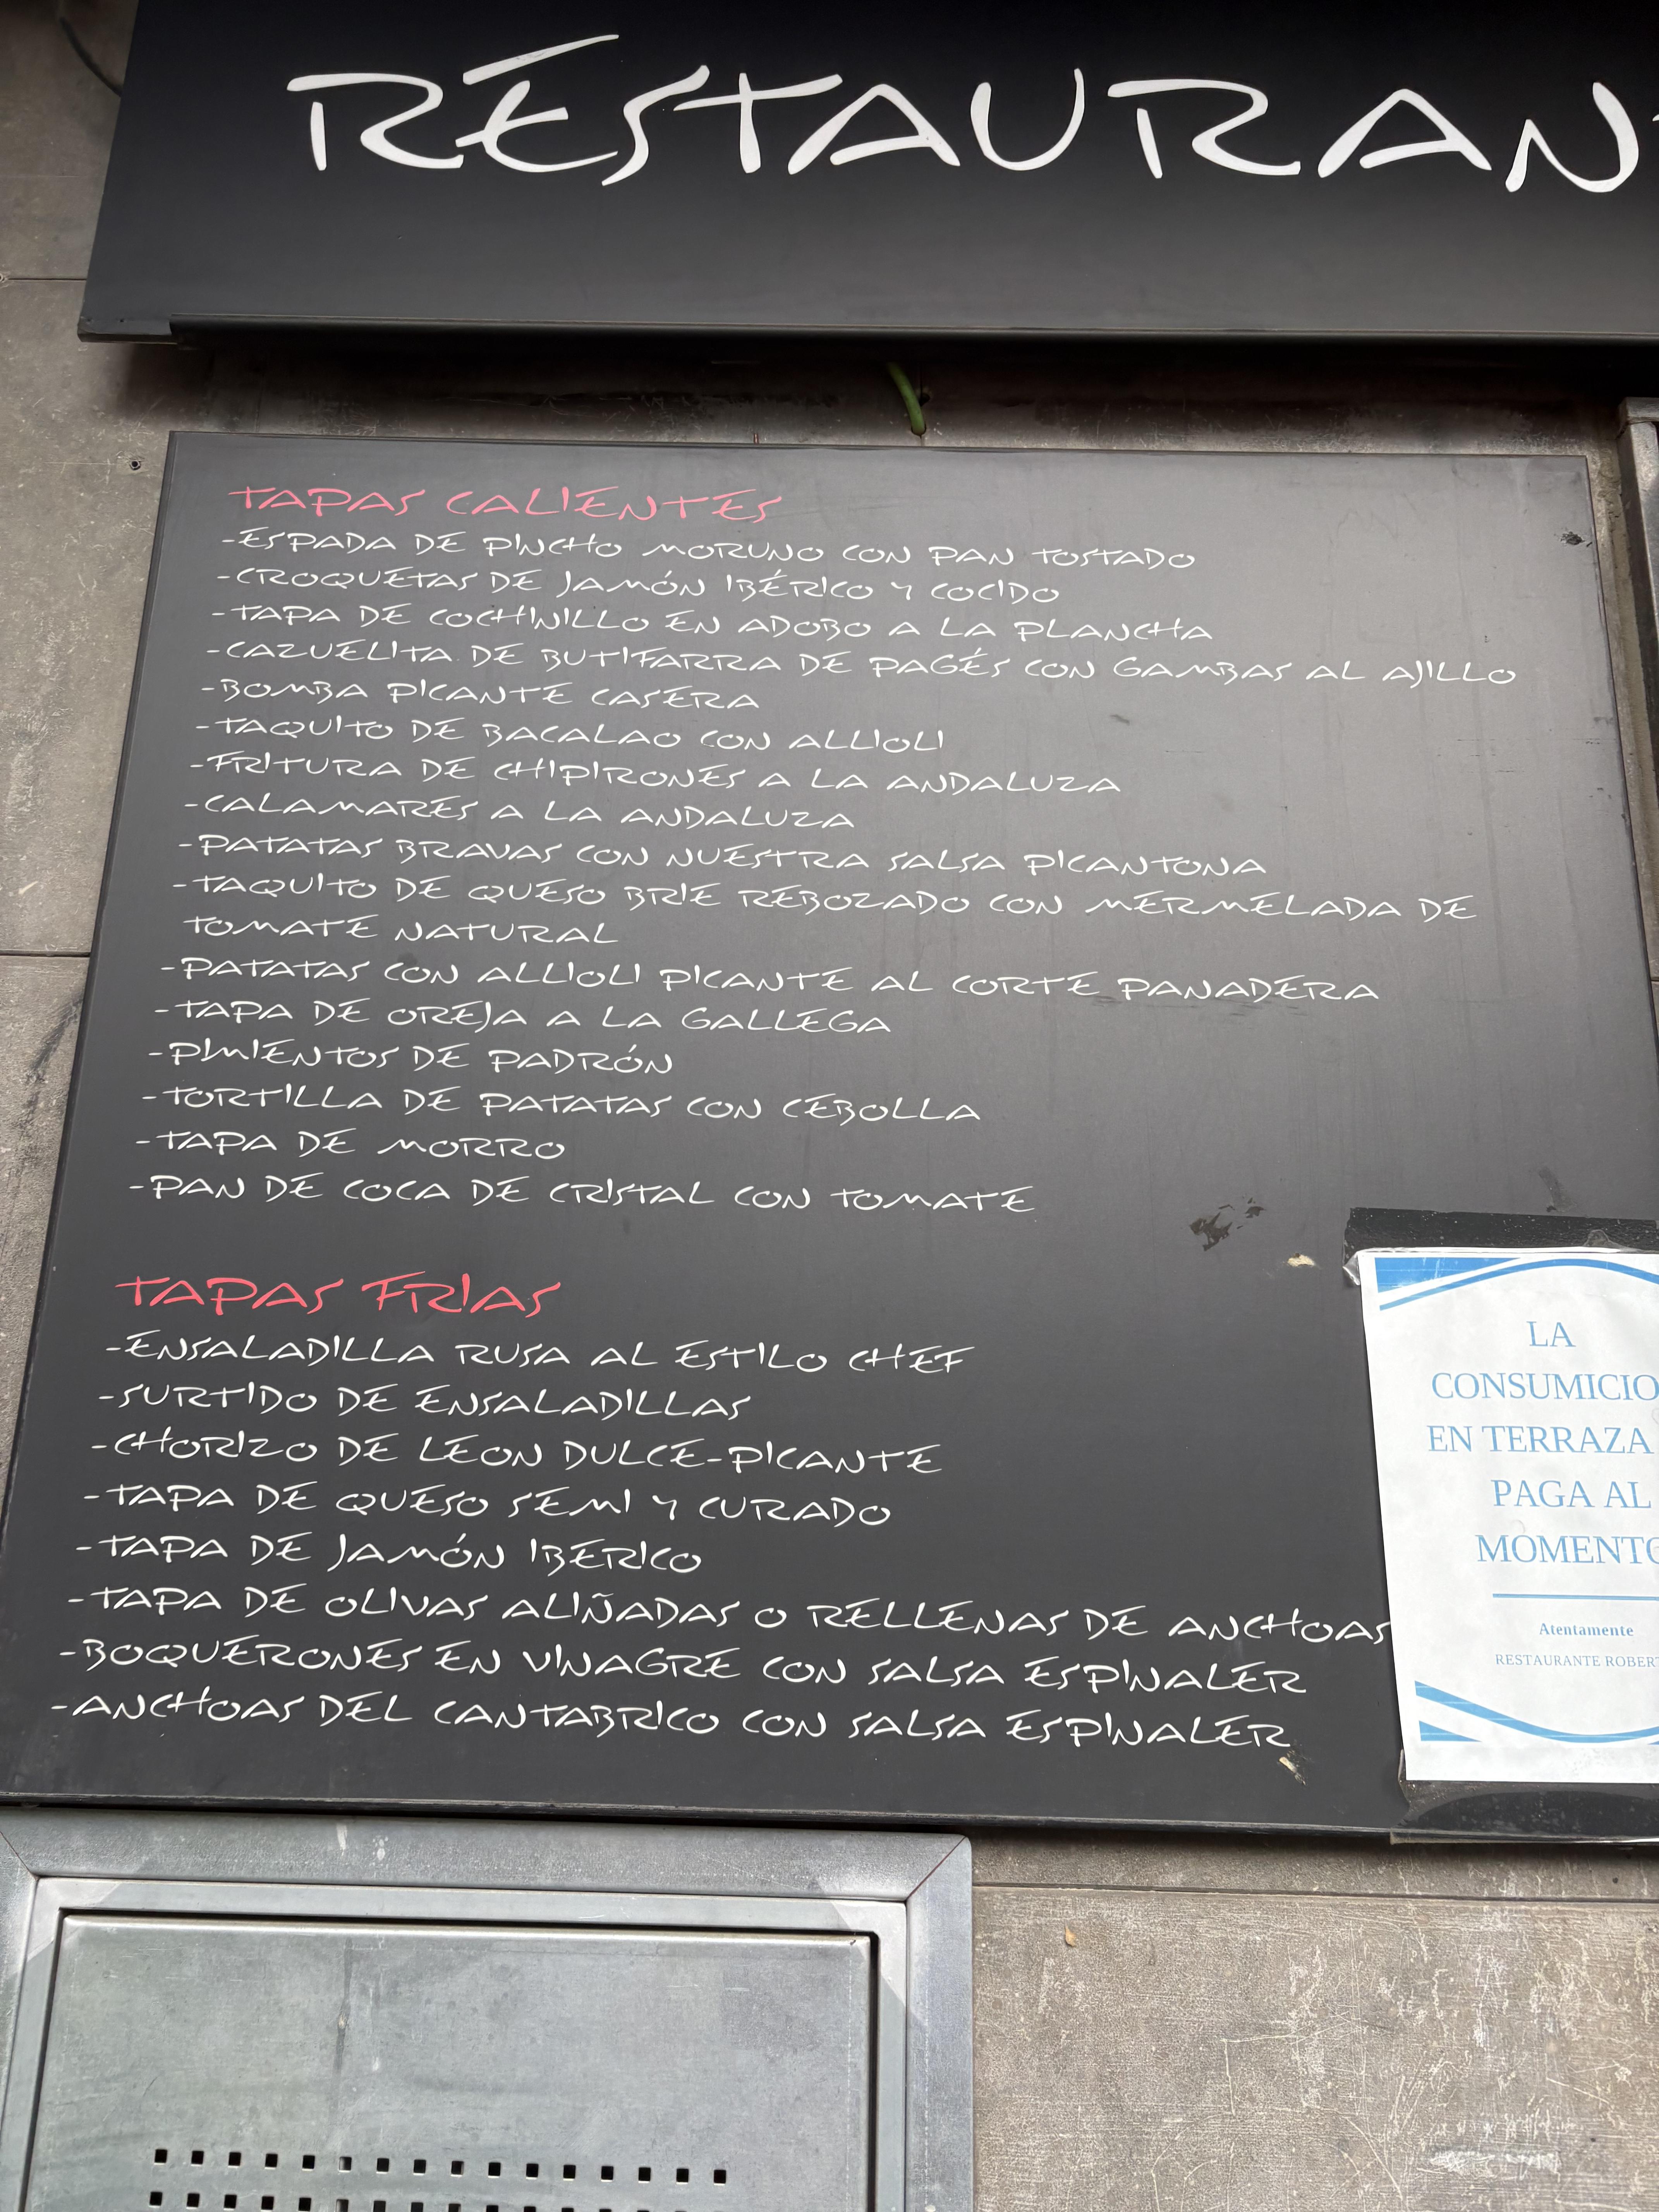 RESTAURAN
TAPAS CALIENTES
-ESPADA DE PINCHO MORUNO CON PAN TOSTADO
-CROQUETAS DE JAMÓN IBÉRICO Y COCIDO
-TAPA DE COCHINILLO EN ADOBO A LA PLANCHA
-CAZUELITA DE BUTIFARRA DE PAGÉS CON GAMBAS AL AJILLO
-BOMBA PICANTE CASERA
-TAQUITO DE BACALAO CON ALLIOLI
-FRITURA DE CHIPIRONES A LA ANDALUZA
-CALAMARES A LA ANDALUZA
-PATATAS BRAVAS CON NUESTRA SALSA PICANTONA
-TAQUITO DE QUESO BRIE REBOZADO CON MERMELADA DE
TOMATE NATURAL
-PATATAS CON ALLIOLI PICANTE AL CORTE PANADERA
-TAPA DE OREJA A LA GALLEGA
-PIMIENTOS DE PADRÓN
-TORTILLA DE PATATAS CON CEBOLLA
-TAPA DE MORRO
-PAN DE COCA DE CRISTAL CON TOMATE
TAPAS FRIAS
-ENSALADILLA RUSA AL ESTILO CHEF
-SURTIDO DE ENSALADILLAS
-CHORIZO DE LEON DULCE-PICANTE
-TAPA DE QUESO SEMI Y CURADO
-TAPA DE JAMÓN IBERICO
-TAPA DE OLIVAS ALIÑADAS O RELLENAS DE ANCHOAS
-BOQUERONES EN VINAGRE CON SALSA ESPINALER
-ANCHOAS DEL CANTABRICO CON SALSA ESPINALER
LA
CONSUMICIO
EN TERRAZA
PAGA AL
MOMENTO
Atentamente
RESTAURANTE ROBERT